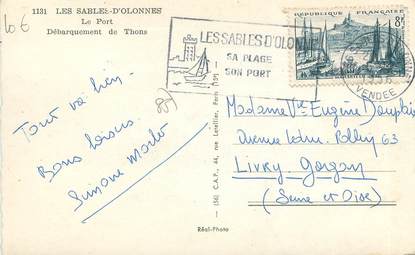 1131 LES SABLES-D'OLONNES
Le Port
Débarquement de Thons
10 €
LES SABLES D'OLONNE
SA PLAGE
SON PORT
RÉPUBLIQUE FRANÇAISE
8F
VENDEE
Tout va bien.
Bons baisers
Simone
Madame Vve Eugène
Avenue Ledru-Rollin 63
Livry-Gargan
(Seine et Oise)
(56) C.A.P., 44, rue Letellier, Paris (15e)
Réal-Photo